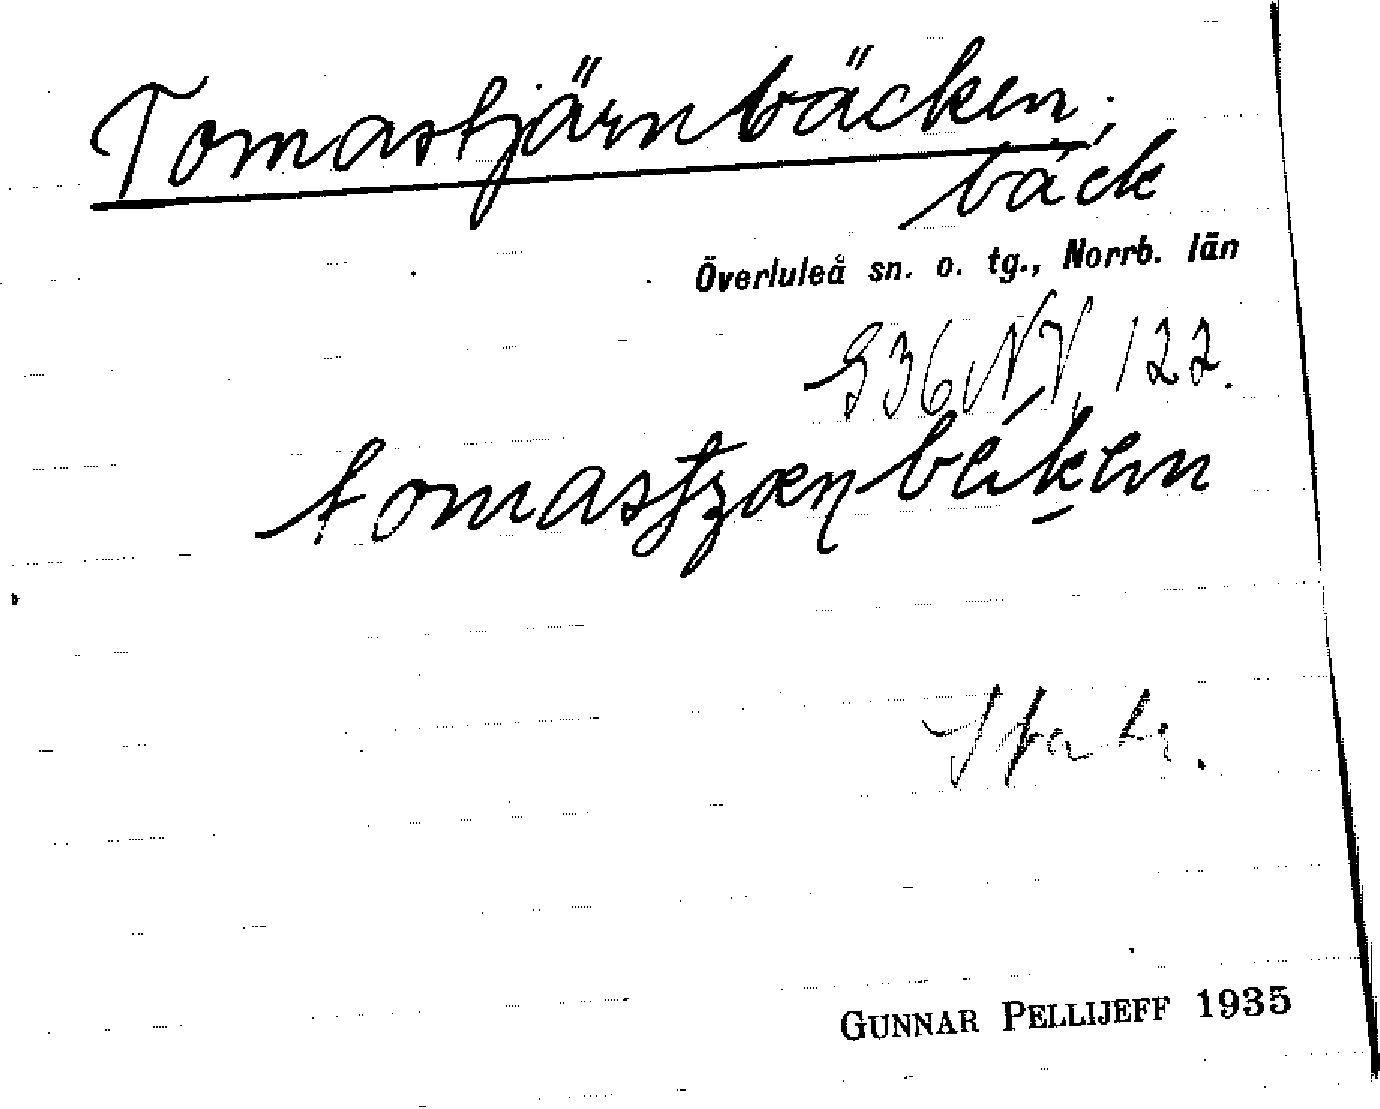 Tomastjärnbäcken,
bäck
Överluleå sn. o. tg., Norrb. län
G36 NV, 122.
GUNNAR PELLIJEFF 1935